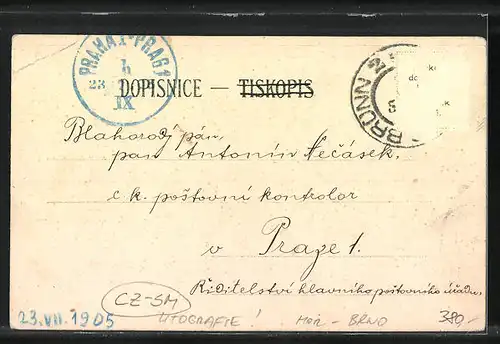 PRAHA 1-PRAG 1
b
23
IX
DOPISNICE — TISKOPIS
BRÜNN
Blahorodý pán,
pan Antonín Nečásek,
c k. poštovní kontrolor
v Praze 1.
Ředitelství hlavního poštovního úřadu.
CZ-SM
23.VII.1905 LITOGRAFIE! MOR - BRNO 380,-